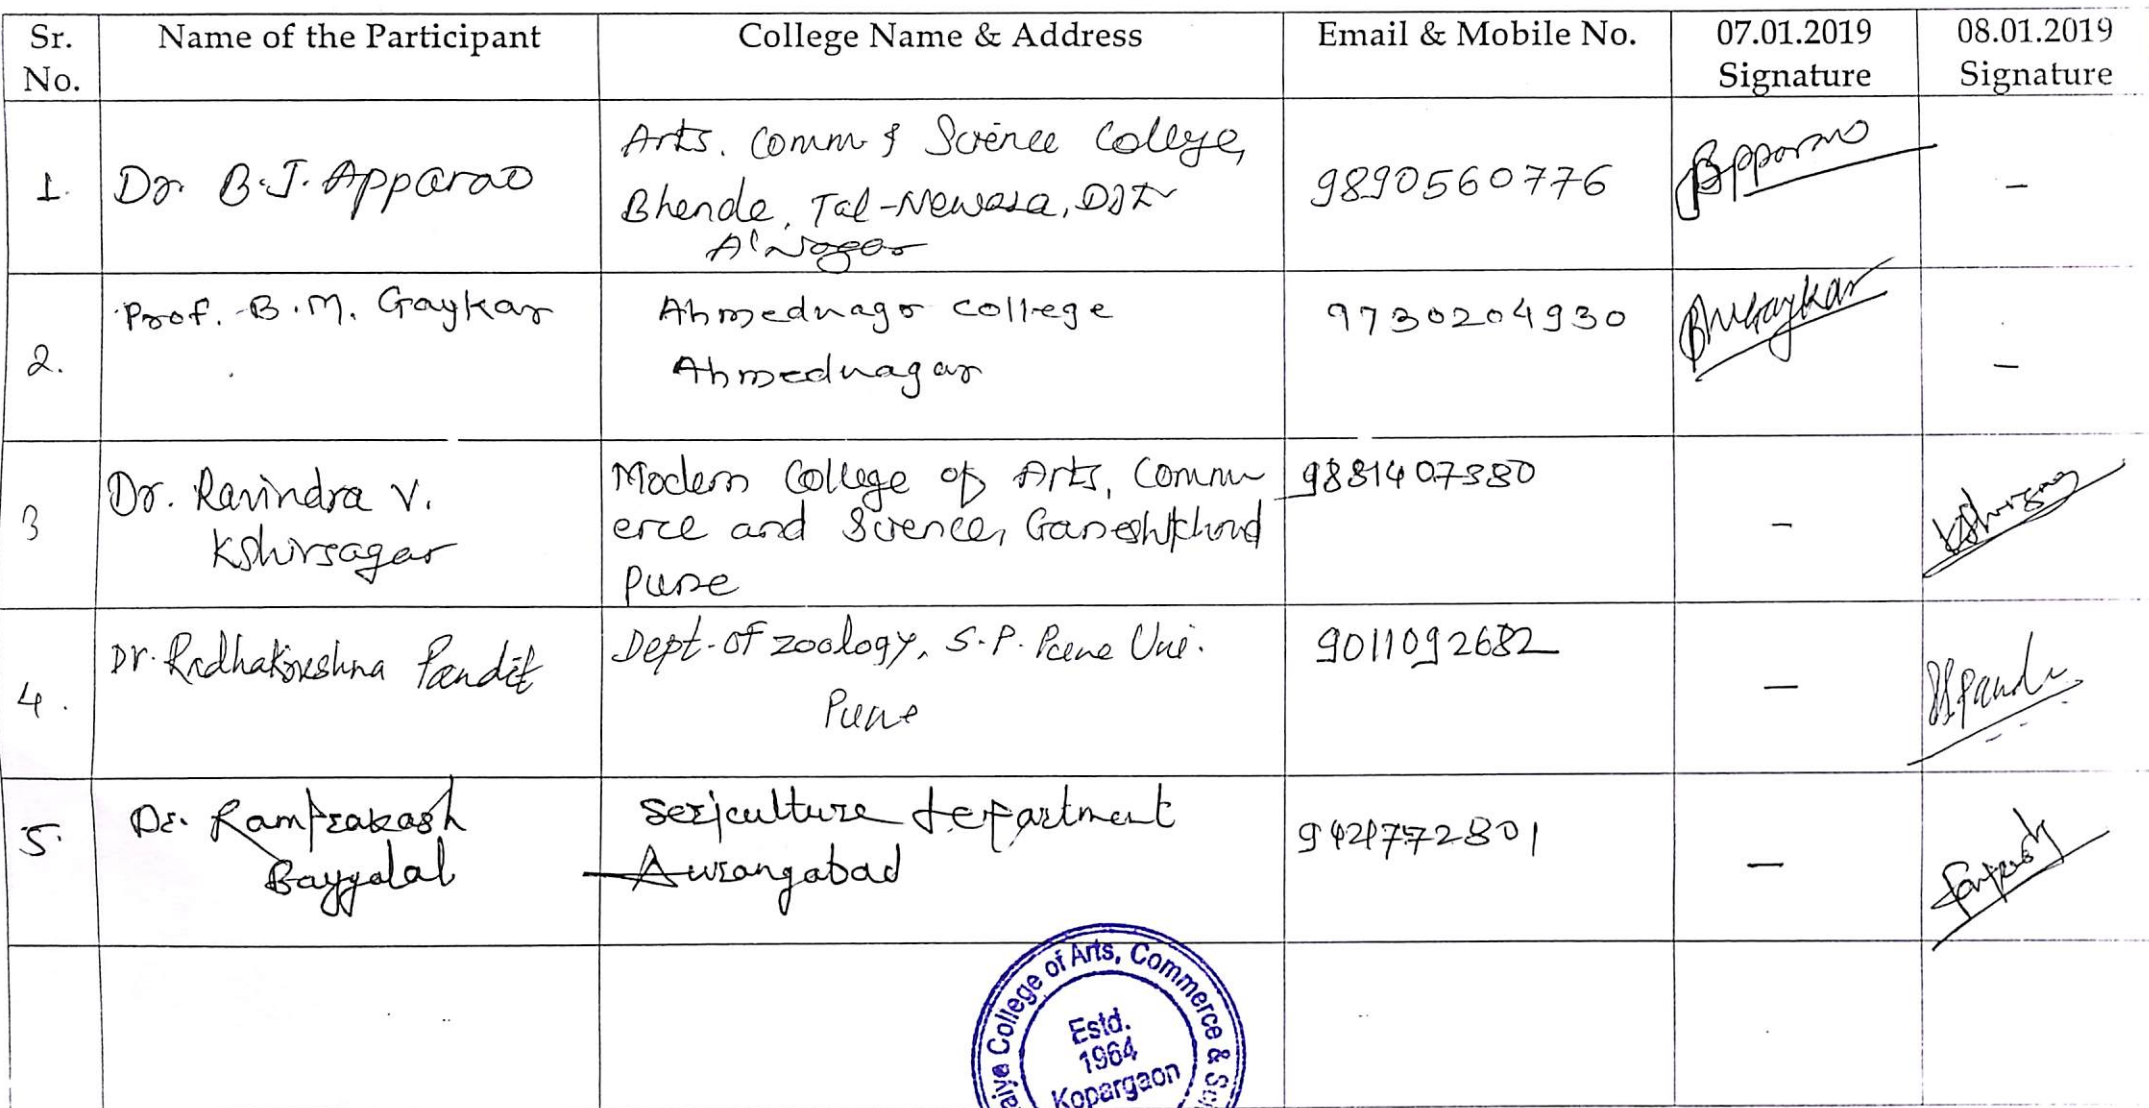 Sr. No.
Name of the Participant
College Name & Address
Email & Mobile No.
07.01.2019 Signature
08.01.2019 Signature
1.
Dr. B.J. Apparao
Arts. Comm & Science College,
Bhende, Tal-Newasa, Dist
A'Nagar
9890560776
Apparao
-
2.
Prof. B.M. Gaykar
Ahmednagr college
Ahmednagar
9730204930
BMGaykar
-
3
Dr. Ravindra V.
Kshirsagar
Modern College of Arts, Comm
erce and Science, Ganeshkhind
Pune
9881407380
-
4.
Dr. Radhakrishna Pandit
Dept. of zoology, S.P. Pune Uni.
Pune
9011092682
-
5.
Dr. Ramprakash
Sericulture department
Aurangabad
-
College of Arts, Commerce &
Estd.
1964
Kopargaon